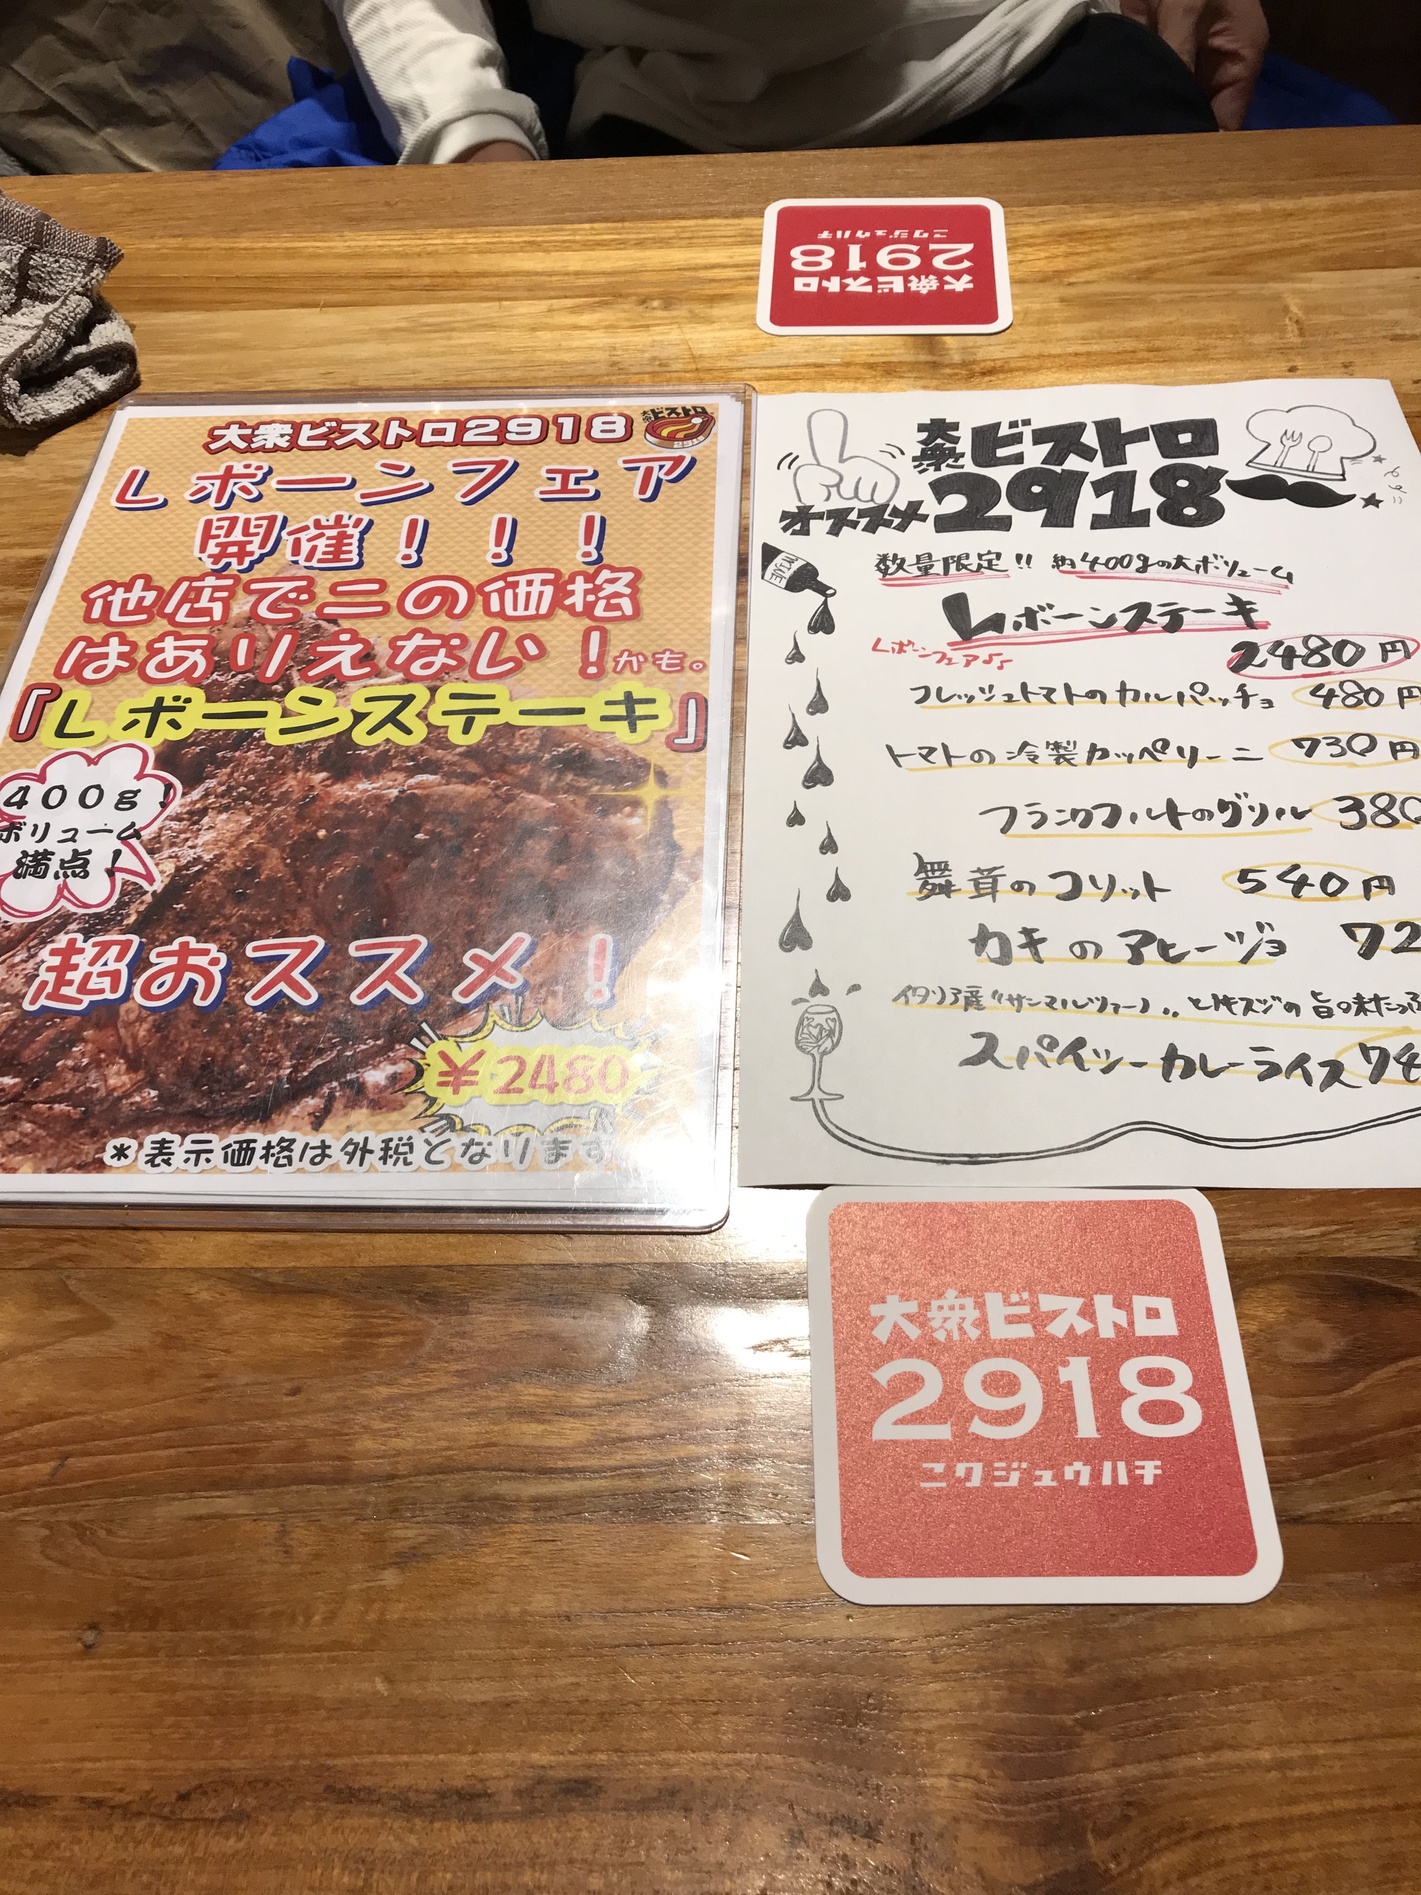 大衆ビストロ
2918
ニクジュウハチ
大衆ビストロ2918
大衆ビストロ
Lボーンフェア
開催！！！
他店でこの価格
はありえない！かも。
『Lボーンステーキ』
400g！
ボリューム
満点！
超おススメ！
¥2480
*表示価格は外税となります
大衆ビストロ
オススメ 2918
WINE
数量限定!! 約400gの大ボリューム
Lボーンステーキ
Lボーンフェア
2480円
フレッシュトマトのカルパッチョ 480円
トマトの冷製カッペリーニ 730円
フランクフルトのグリル 380
舞茸のフリット 540円
カキのアヒージョ 72
イタリア産"サンマルツァーノ"
スパイシーカレーライス 74
大衆ビストロ
2918
ニクジュウハチ